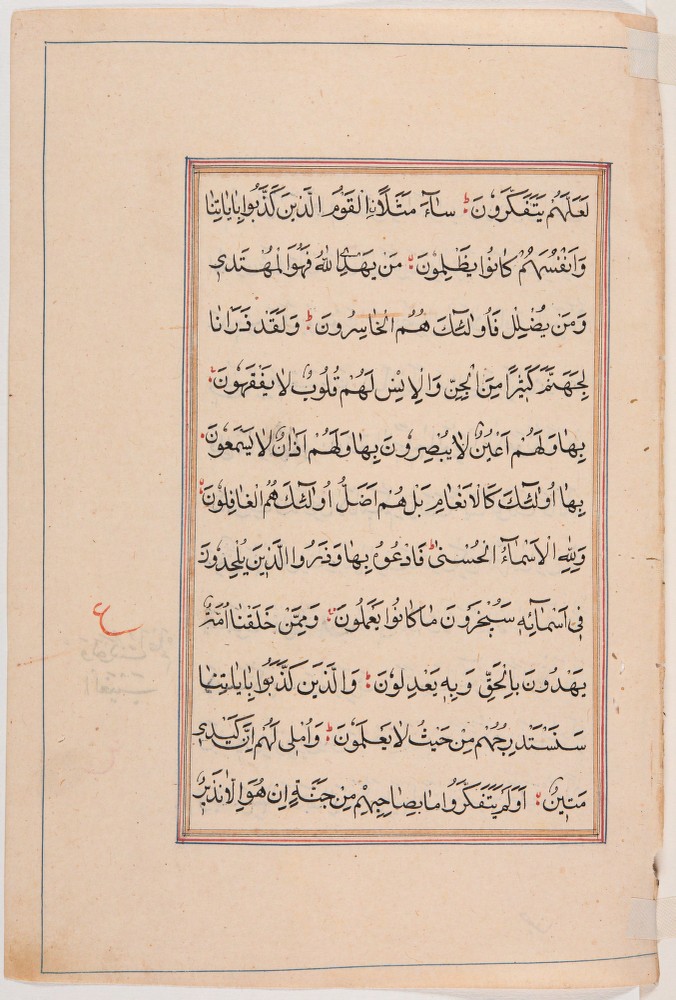 لَعَلَّهُمْ يَتَفَكَّرُونَ سَاۤءَ مَثَلَاۨ الْقَوْمُ الَّذِينَ كَذَّبُوا بِاٰيَاتِنَا
وَاَنْفُسَهُمْ كَانُوا يَظْلِمُونَ مَنْ يَهْدِي اللهُ فَهُوَ الْمُهْتَدِي
وَمَنْ يُضْلِلْ فَاُولٰۤئِكَ هُمُ الْخَاسِرُونَ وَلَقَدْ ذَرَاْنَا
لِجَهَنَّمَ كَثِيرًا مِنَ الْجِنِّ وَالْاِنْسِ لَهُمْ قُلُوبٌ لَا يَفْقَهُونَ
بِهَا وَلَهُمْ اَعْيُنٌ لَا يُبْصِرُونَ بِهَا وَلَهُمْ اٰذَانٌ لَا يَسْمَعُونَ
بِهَا اُولٰۤئِكَ كَالْاَنْعَامِ بَلْ هُمْ اَضَلُّ اُولٰۤئِكَ هُمُ الْغَافِلُونَ
وَلِلّٰهِ الْاَسْمَاۤءُ الْحُسْنٰى فَادْعُوهُ بِهَا وَذَرُوا الَّذِينَ يُلْحِدُونَ
فِي اَسْمَاۤئِهٖ سَيُجْزَوْنَ مَا كَانُوا يَعْمَلُونَ وَمِمَّنْ خَلَقْنَا اُمَّةٌ
يَهْدُونَ بِالْحَقِّ وَبِهٖ يَعْدِلُونَ وَالَّذِينَ كَذَّبُوا بِاٰيَاتِنَا
سَنَسْتَدْرِجُهُمْ مِنْ حَيْثُ لَا يَعْلَمُونَ وَاُمْلِي لَهُمْ اِنَّ كَيْدِي
مَتِينٌ اَوَلَمْ يَتَفَكَّرُوا مَا بِصَاحِبِهِمْ مِنْ جِنَّةٍ اِنْ هُوَ اِلَّا نَذِيرٌ
ع